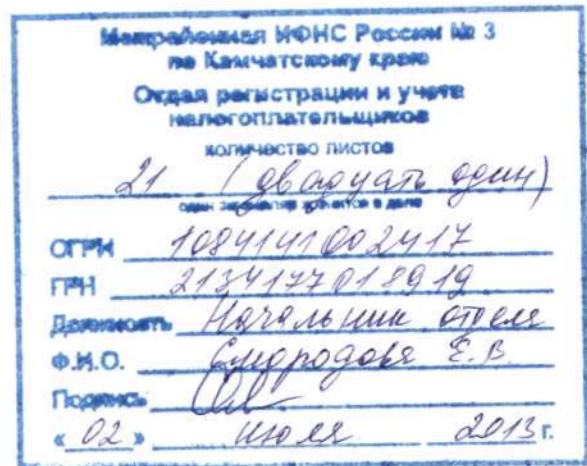 Межрайонная ИФНС России № 3
по Камчатскому краю
Отдел регистрации и учета
налогоплательщиков
количество листов
21 (двадцать один)
один экземпляр хранится в деле
ОГРН 1084141002417
ГРН 2134177018919
Должность Начальник отдела
Ф.И.О. Е.В.
Подпись
« 02 » июля 2013 г.